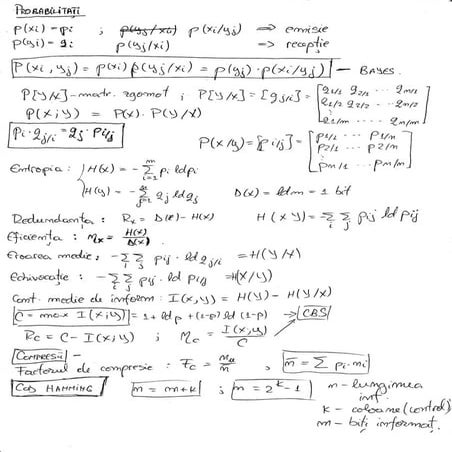 PROBABILITĂȚI
p(xi) = pi ; p(xi/yj) => emisie
p(yj) = qj p(yj/xi) => receptie
P(xi, yj) = p(xi) p(yj/xi) = p(yj) · p(xi/yj) — BAYES.
P[Y/X] - matr. zgomot ; P[Y/X] = [qj/i] = [q1/1 q2/1 ... qm/1
q1/2 q2/2 ... qm/2
q1/m ... qm/m]
P(X;Y) = P(X) · P(Y/X)
pi · qj/i = qj · pi/j
P(X/Y) = [pi/j] = [p1/1 ... p1/m
p2/1 ... p2/m
pm/1 ... pm/m]
Entropia : H(X) = - Σ pi ld pi
H(Y) = - Σ qj ld qj D(X) = ld m = 1 bit
Redundanța : Rx = D(X) - H(X) H(XY) = - Σ Σ pij ld pij
Eficiența : Mx = H(X)/D(X)
Eroarea medie : - Σ Σ pij · ld qj/i = H(Y/X)
Echivocație : - Σ Σ pij · ld pi/j = H(X/Y)
Cant. medie de inform : I(X,Y) = H(Y) - H(Y/X)
C = max I(X,Y) = 1 + p ld p + (1-p) ld (1-p) → CBS
Rc = C - I(X,Y) ; Mc = I(X,Y)/C
Compresie -
Factorul de compresie : Fc = mu/m ; m = Σ pi · mi
COD HAMMING n = m + k ; n = 2^k - 1 n - lungimea inf.
k - coloane (control)
m - biți informaț.